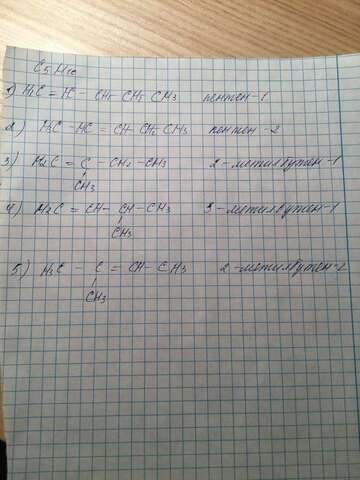 C5H10
1) H2C = HC - CH2 CH2 CH3 пентен-1
2) H3C - HC = CH CH2 CH3 пентен-2
3) H2C = C - CH2 - CH3 2-метилбутен-1
CH3
4) H2C = CH - CH - CH3 3-метилбутен-1
CH3
5) H3C - C = CH - CH3 2-метилбутен-2
CH3